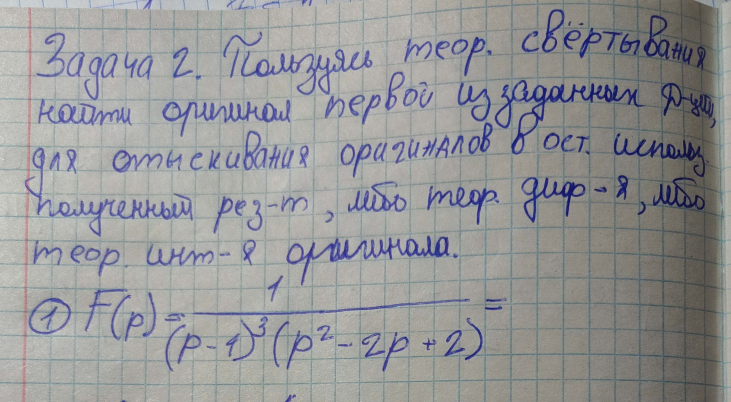 Задача 2. Пользуясь теор. свёртывания
найти оригинал первой из заданных ф-ций,
для отыскивания оригиналов в ост. использ.
полученный рез-т, либо теор. диф-я, либо
теор. инт-я оригинала.
① F(p) = 1 / (p-1)³(p²-2p+2) =